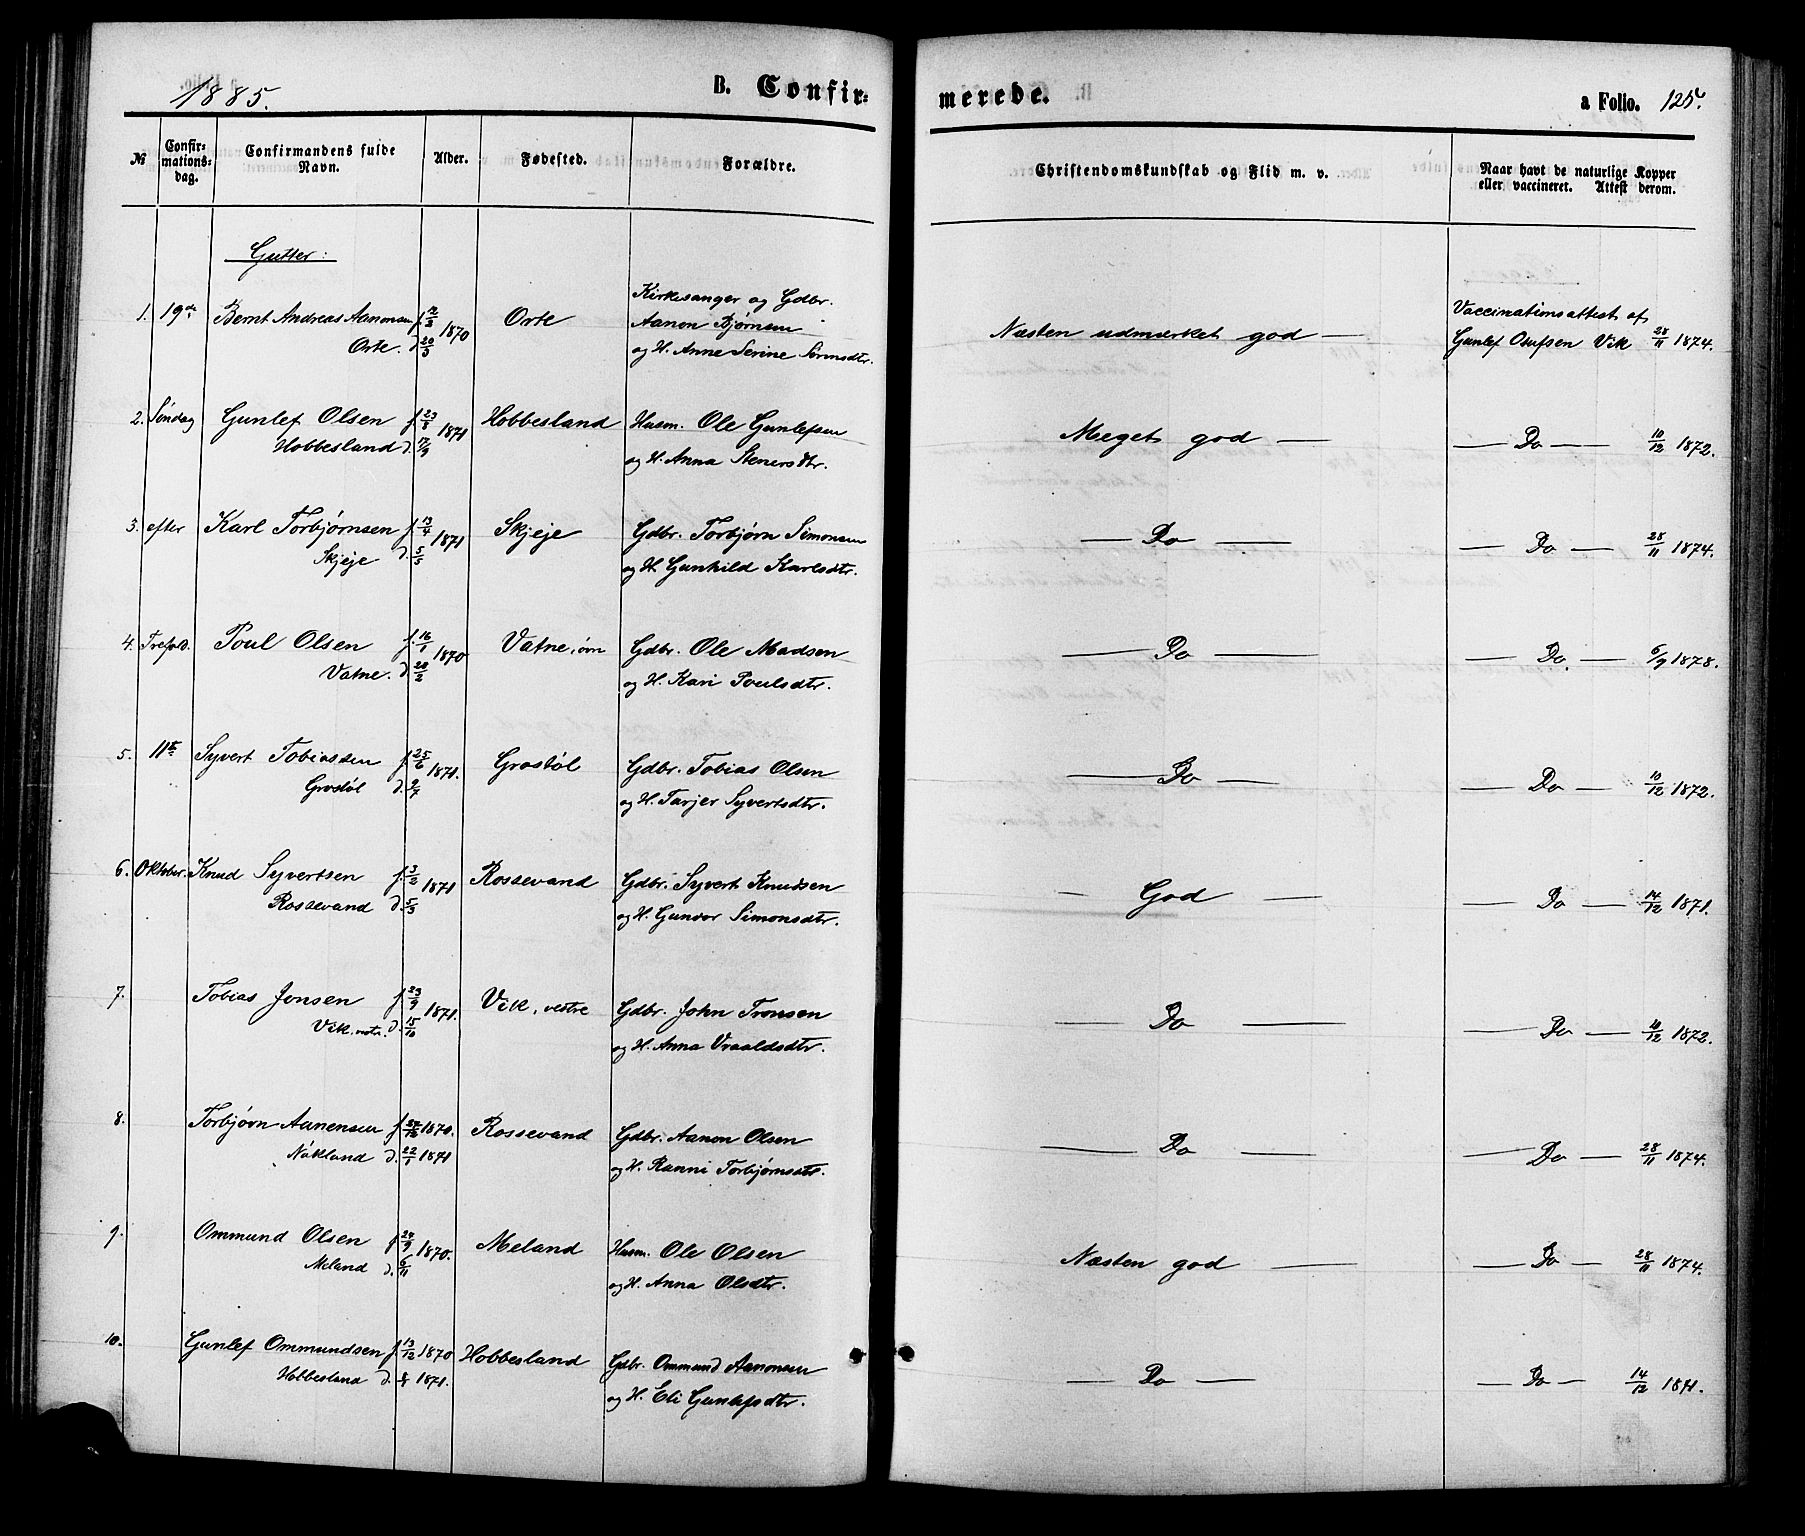 1885.
B. Confir=
merede.
a Folio. 125.
№
Confir=
mations=
dag.
Confirmandens fulde
Navn.
Alder.
Fødested.
Forældre.
Christendomskundskab og Flid m. v.
Naar havt de naturlige Kopper
eller vaccineret. Attest derom.
Gutter:
1. 19de Bernt Andreas Aanonsen f. 1870 Orte Kirkesanger og Gdbr.
Orte. d. 20/3 Aanon Bjørnsen
og H. Anne Serine Sørensdtr.
Næsten udmærket god —
Vaccinationsattest af
Gunlef Olufsen Vik 28/11 1874.
2. Søndag Gunlef Olsen f. 23/8 1871 Hobbesland Husm. Ole Gunlefsen
Hobbesland d. og H. Anna Stenersdtr.
Meget god — — Do — 10/12 1872.
3. efter Karl Torbjørnsen f. 13/4 1871 Skjeje Gdbr. Torbjørn Simonsen
Skjeje d. 5/5 og H. Gunhild Karlsdtr.
— Do — — Do — 28/11 1874.
4. Trefold. Poul Olsen f. 16/1 1870 Vatne, øvr Gdbr. Ole Madsen
Vatne. d. 20/2 og H. Kari Poulsdtr.
— Do — — Do. — 6/9 1878.
5. 11te Syvert Tobiassen f. 25/6 1871. Grostøl Gdbr. Tobias Olsen
Grostøl d. 9/7 og H. Tarjer Syvertsdtr.
— Do — — Do — 10/12 1872.
6. Oktober. Knud Syvertsen f. 3/2 1871 Rossevand Gdbr. Syvert Knudsen
Rossevand d. 5/3 og H. Gunvor Simonsdtr.
— God — — Do — 14/12 1871.
7. Tobias Jensen f. 23/9 1871. Vik, vestre Gdbr. John Tronsen
Vik, vestr. d. 15/10 og H. Anna Vraaldsdtr.
— Do — — Do — 10/12 1872.
8. Torbjørn Aanensen f. 1870. Rossevand Gdbr. Aanon Olsen
Nökland d. 22/1 1871 og H. Ranni Torbjørnsdtr.
— Do — — Do — 28/11 1874.
9. Ommund Olsen f. 24/9 1870. Meland Husm. Ole Olsen
Meland d. 6/11 og H. Anna Olsdtr.
Næsten god — — Do — 28/11 1874.
10. Gunlef Ommundsen f. 13/12 1870 Hobbesland Gdbr. Ommund Aanonsen
Hobbesland d. 1871. og H. Eli Gunlefsdtr.
— Do — — Do — 14/12 1871.